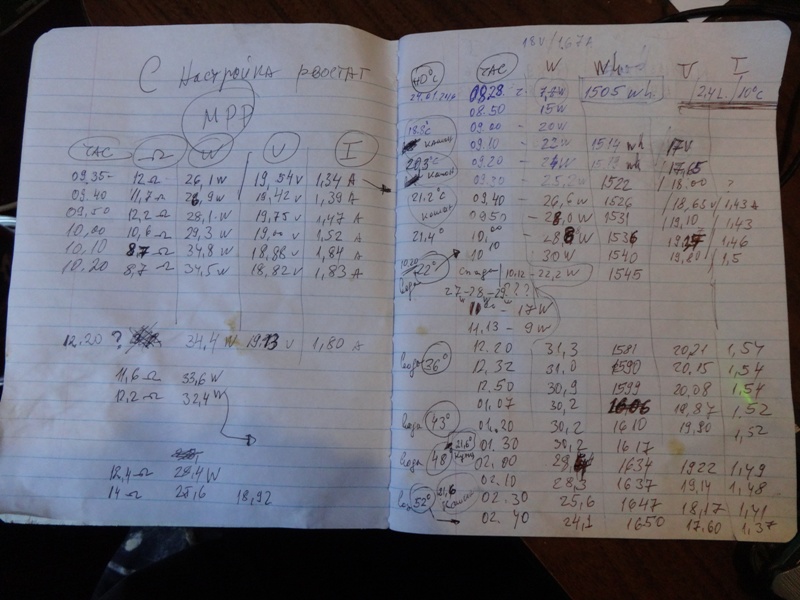 С Настройка реостат
MPP
ЧАС Ω W V I
09,35 12 Ω 26,1 W 19,54 V 1,34 A
09.40 11,7 Ω 26,9 W 19,42 V 1,39 A
09,50 12,2 Ω 28,1 W 19,75 V 1,47 A
10,00 10,6 Ω 29,3 W 19,00 V 1,52 A
10,10 8,7 Ω 34,8 W 18,88 V 1,84 A
10.20 8,7 Ω 34,5 W 18,82 V 1,83 A
12.20 ? 34,4 W 19,13 V 1,80 A
11,6 Ω 33,6 W
12,2 Ω 32,4 W
12,4 Ω 28,4 W
14 Ω 25,6 18,92
18V/1,67A
ЧАС W Wh U I
08.28 7,7W 1505 Wh 24L /10°C
08.50 15W
09.00 - 20W
09.10 - 22W 1514 Wh 17V
09.20 - 24W 1519 Wh 17,65
09.30 - 25,2W 1522 18.00 ?
21.2°C 09,40 - 26,6W 1526 18,65V 1,43A
09,50 - 28,0W 1531 19,10 1,43
21,4° 10,00 - 28,8W 1536 1,46
10,10 30W 1540 19,20 1,5
22° 10.12-22,2W 1545
27-28-29???
- 17W
11.13 - 9W
12.20 31,3 1581 20,21 1,54
Вода 36° 12,32 31,0 1590 20,15 1,54
12.50 30,9 1599 20,08 1,54
01.07 30,2 1606 19,87 1,52
Вода 43° 01.20 30,2 1610 19,90 1,52
01.30 30,2 1617
Вода 48° 02.00 1634 19,22 1,49
02.10 28,3 1637 19,14 1,48
52° 02.30 25,6 1647 18,17 1,41
02.40 24,1 1650 17,60 1,37